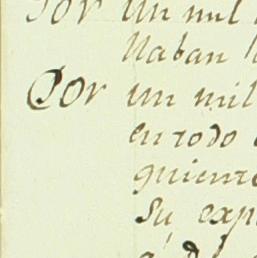 Por un mil
llaban
Por un mil
en todo
quiento
Su exp
á d